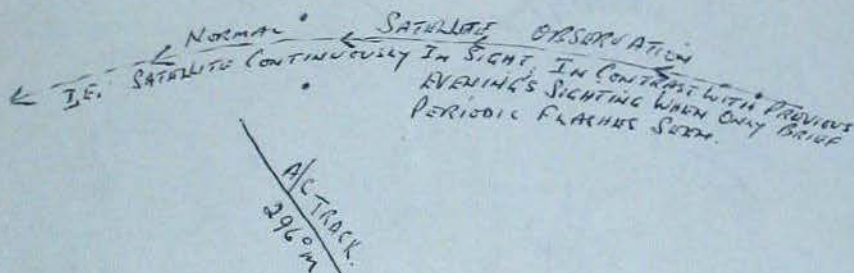 NORMAL SATELLITE OBSERVATION
I.E. SATELLITE CONTINUOUSLY IN SIGHT, IN CONTRAST WITH PREVIOUS
EVENING'S SIGHTING WHEN ONLY BRIEF
PERIODIC FLASHES SEEN.
A/C TRACK.
296°M